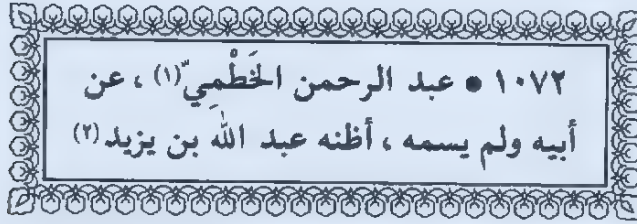 ١٠٧٢ • عبد الرحمن الخَطْمِيّ (١) ، عن
أبيه ولم يسمه ، أظنه عبد الله بن يزيد (٢)